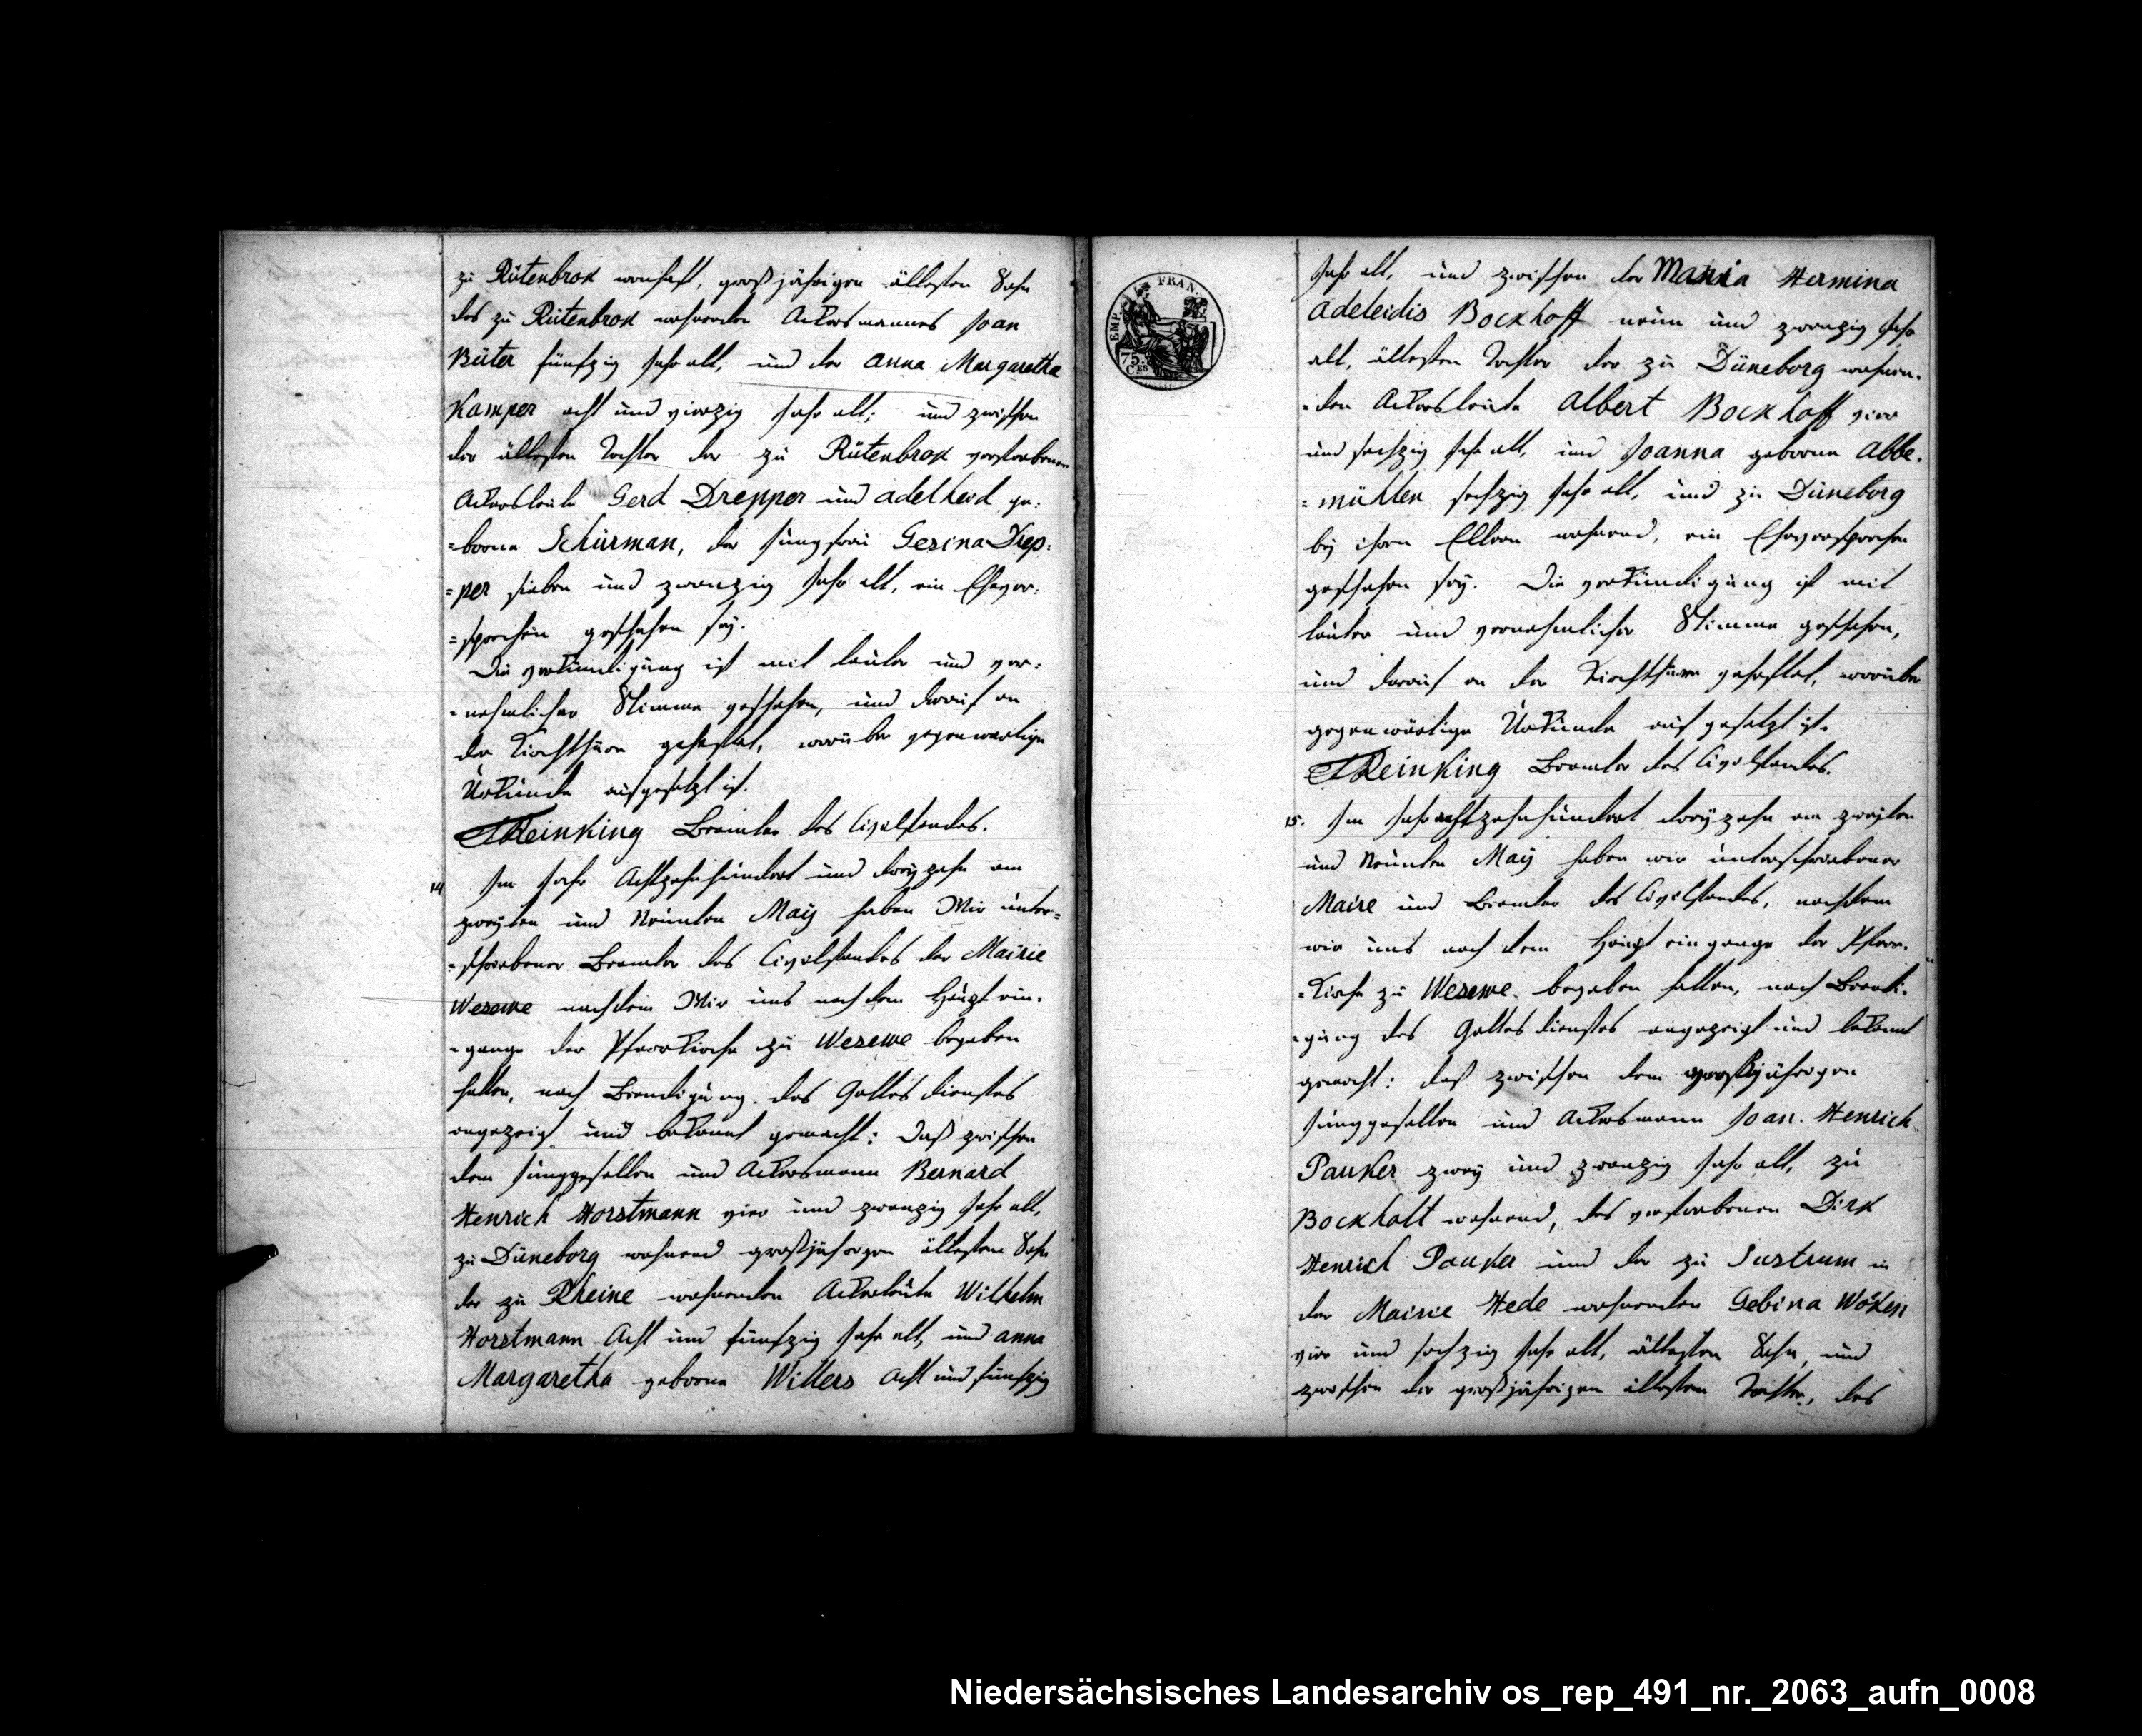 zu Rütenbrok wonhaft, großjährigen ältesten Sohn
des zu Rütenbrok wohnenden Ackersmannes Joan
Büter fünfzig Jahr alt, und der Anna Margaretha
Kamper acht und vierzig Jahr alt; und zwischen
der ältesten Tochter der zu Rütenbrok verstorbenen
Ackersleute Gerd Drepper und Adelheid ge=
=borne Schürman, der Jungfrau Gesina Drep=
=per sieben und zwanzig Jahr alt, ein Ehever=
=sprechen geschehen sey.
Die verkündigung ist mit lauter und ver=
=nehmlicher Stimme geschehen, und darauf an
der Kirchthüre geheftet, worüber gegenwärtige
Urkunde aufgesetzt ist.
Reinking Beamter des Civilstandes.
14 Im Jahr Achtzehnhundert und dreyzehn am
zweyten und Neunten May haben Wir unter=
=schriebener Beamter des Civilstandes der Mairie
Wesewe nachdem Wir uns nach dem Haupt ein=
=gange der Pfarrkirche zu Wesewe begeben
hatten, nach Beendigung des Gottes dienstes
angezeigt und bekannt gemacht: Daß zwischen
dem Junggesellen und Ackersmann Bernard
Henrich Horstmann vier und zwanzig Jahr alt,
zu Düneborg wohnend großjährigen ältesten Sohn
der zu Rheine wohnenden Ackerleute Wilhelm
Horstmann Acht und fünfzig Jahr alt, und Anna
Margaretha geborne Willers Acht und fünfzig
EMP. FRAN.
75.
CES
Jahr alt, und zwischen der Maria Hermina
Adeleidis Bockhoff neun und zwanzig Jahr
alt, ältesten Tochter der zu Düneborg wohnen=
=den Ackersleute Albert Bockhoff vier
und sechzig Jahr alt, und Joanna geborne Abbe=
=mühlen sechzig Jahr alt, und zu Düneborg
bey ihren Eltern wohnend, ein Eheversprechen
geschehen sey. Die verkündigung ist mit
lauter und vernehmlicher Stimme geschehen,
und darauf an der Kirchthüre geheftet, worüber
gegenwärtige Urkunde aufgesetzt ist.
Reinking Beamter des Civilstandes.
15. Im Jahr achtzehnhundert dreyzehn am zweyten
und Neunten May haben wir unterschriebener
Maire und Beamter des Civilstandes, nachdem
wir uns nach dem Haupt eingange der Pfarr=
=kirche zu Wesewe begeben hatten, nach Beendi=
=gung des Gottesdienstes angezeigt und bekannt
gemacht: daß zwischen dem großjährigen
Junggesellen und Ackersmann Joan. Henrich
Pauker zwey und zwanzig Jahr alt, zu
Bockholt wohnend, des verstorbenen Dirk
Henrich Pauker und der zu Sustrum in
der Mairie Hede wohnenden Gebina Wöken
vier und sechzig Jahr alt, ältesten Sohn, und
zwischen der großjährigen ältesten Tochter, des
Niedersächsisches Landesarchiv os_rep_491_nr._2063_aufn_0008